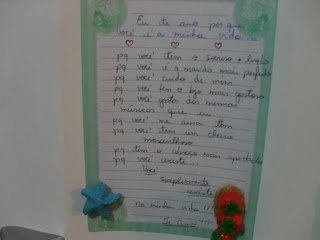 Eu te amo por que
você é a minha vida
pq você tem o sorriso + lindo
pq você é a mamãe mais perfeita
pq você cuida de mim
pq você tem o bjo mais gostoso
pq você gosta das mesmas
músicas que eu
pq você me ama tbm
pq você tem um cheiro
maravilhoso
pq tem o abraço mais apertado
pq você existe...
Você
simplesmente
existe
na minha vida !!!
Te Amo !!!